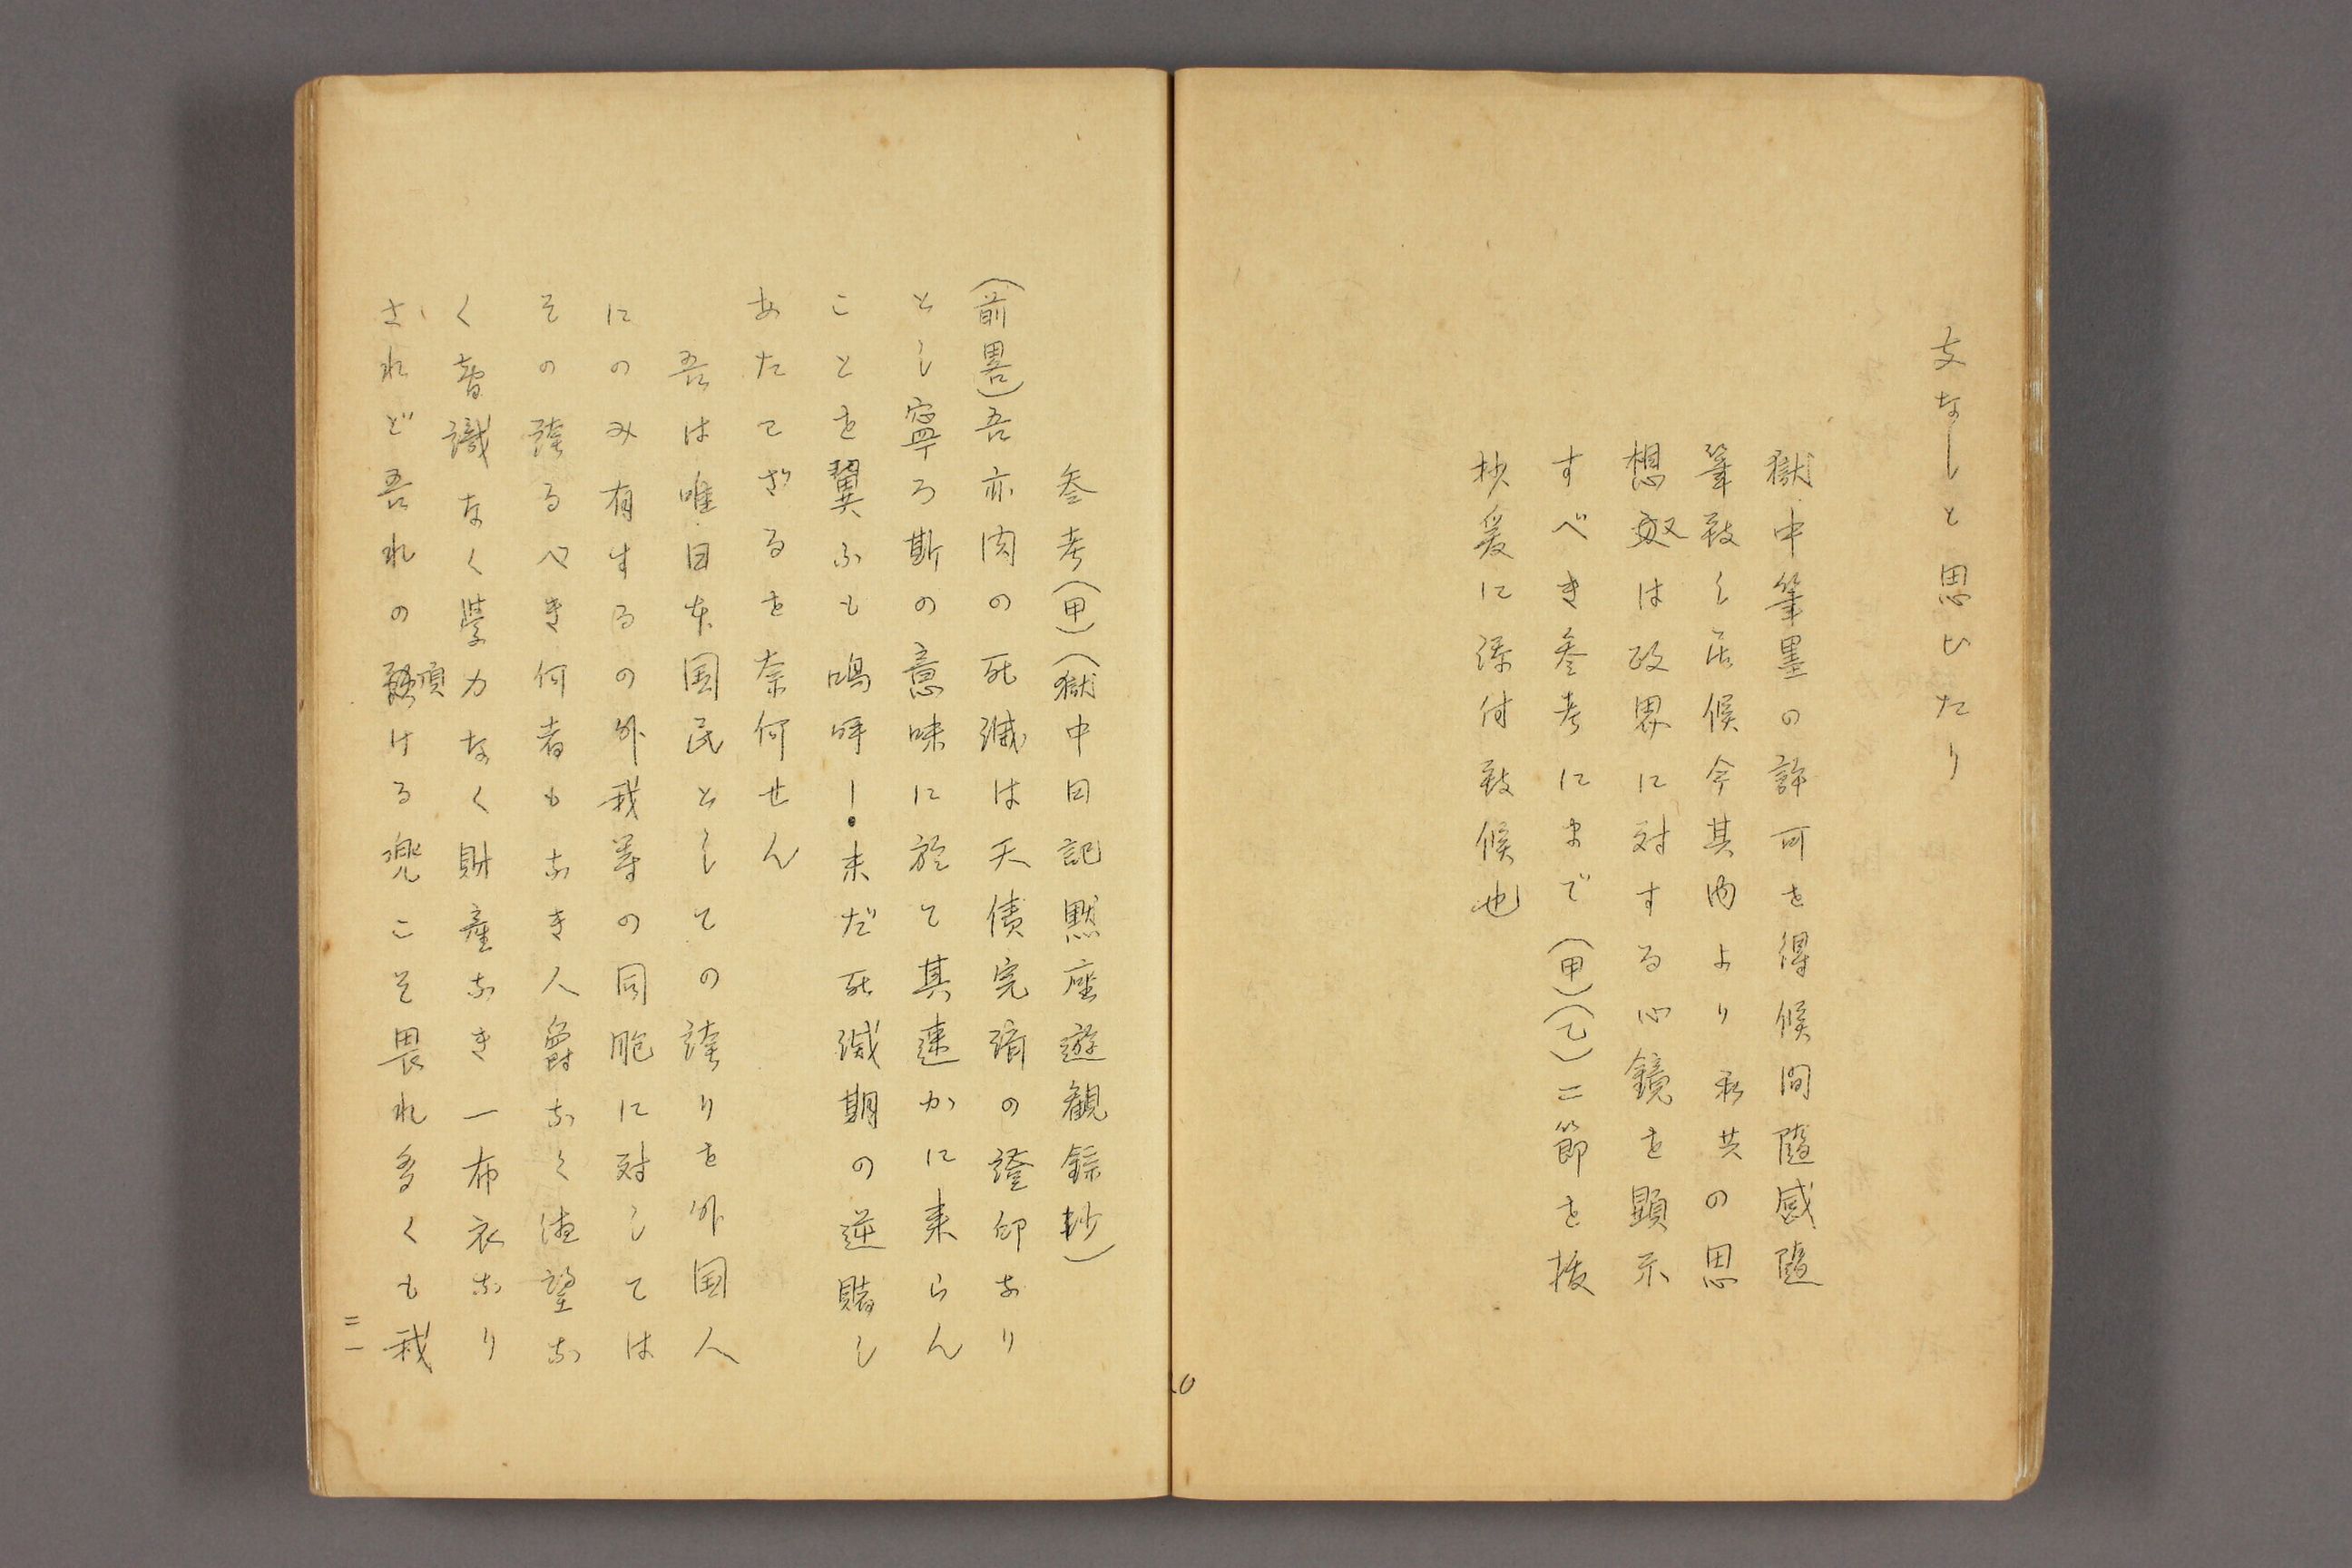 支なしと思ひたり
獄中筆墨の許可を得候間隨感隨
筆致し居候今其内より私共の思
想は政界に対する心鏡を顕示
すべき参考にまで(甲)(乙)二節を抜
抄爰に添付致候也
参考(甲)(獄中日記黙座遊観録抄)
(前畧)吾亦肉の死滅は天債完済の證印なり
とし寧ろ斯の意味に於て其速かに来らん
ことを翼ふも嗚呼!未だ死滅期の逆賭し
あたてざるを奈何せん
吾は唯日本国民としての誇りを外国人
にのみ有するの外我等の同胞に対しては
その誇るべき何者もなき人爵なく徳望な
く智識なく學力なく財産なき一布衣なり
されど吾れの頂ける兜こそ畏れ多くも我
二一